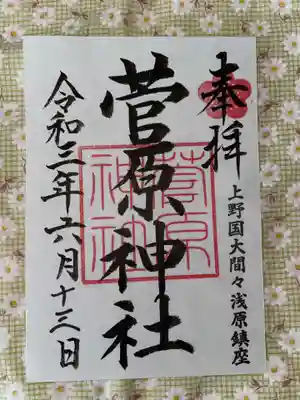 奉拝
上野国大間々浅原鎮座
菅原神社
菅原神社
令和三年六月十三日